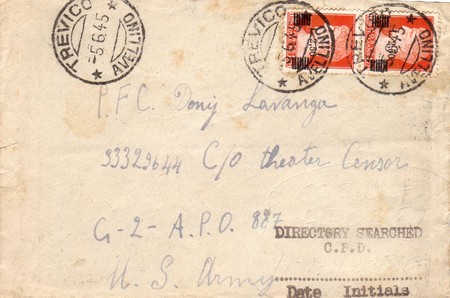 TREVICO
AVELLINO
-5.6.45
TREVICO
AVELLINO
-5.6.45
TREVICO
AVELLINO
P.F.C. Dony Lavanga
33329644 C/O theater Censor
G-2-A.P.O. 887
U.S. Army
DIRECTORY SEARCHED
C.P.D.
Date Initials